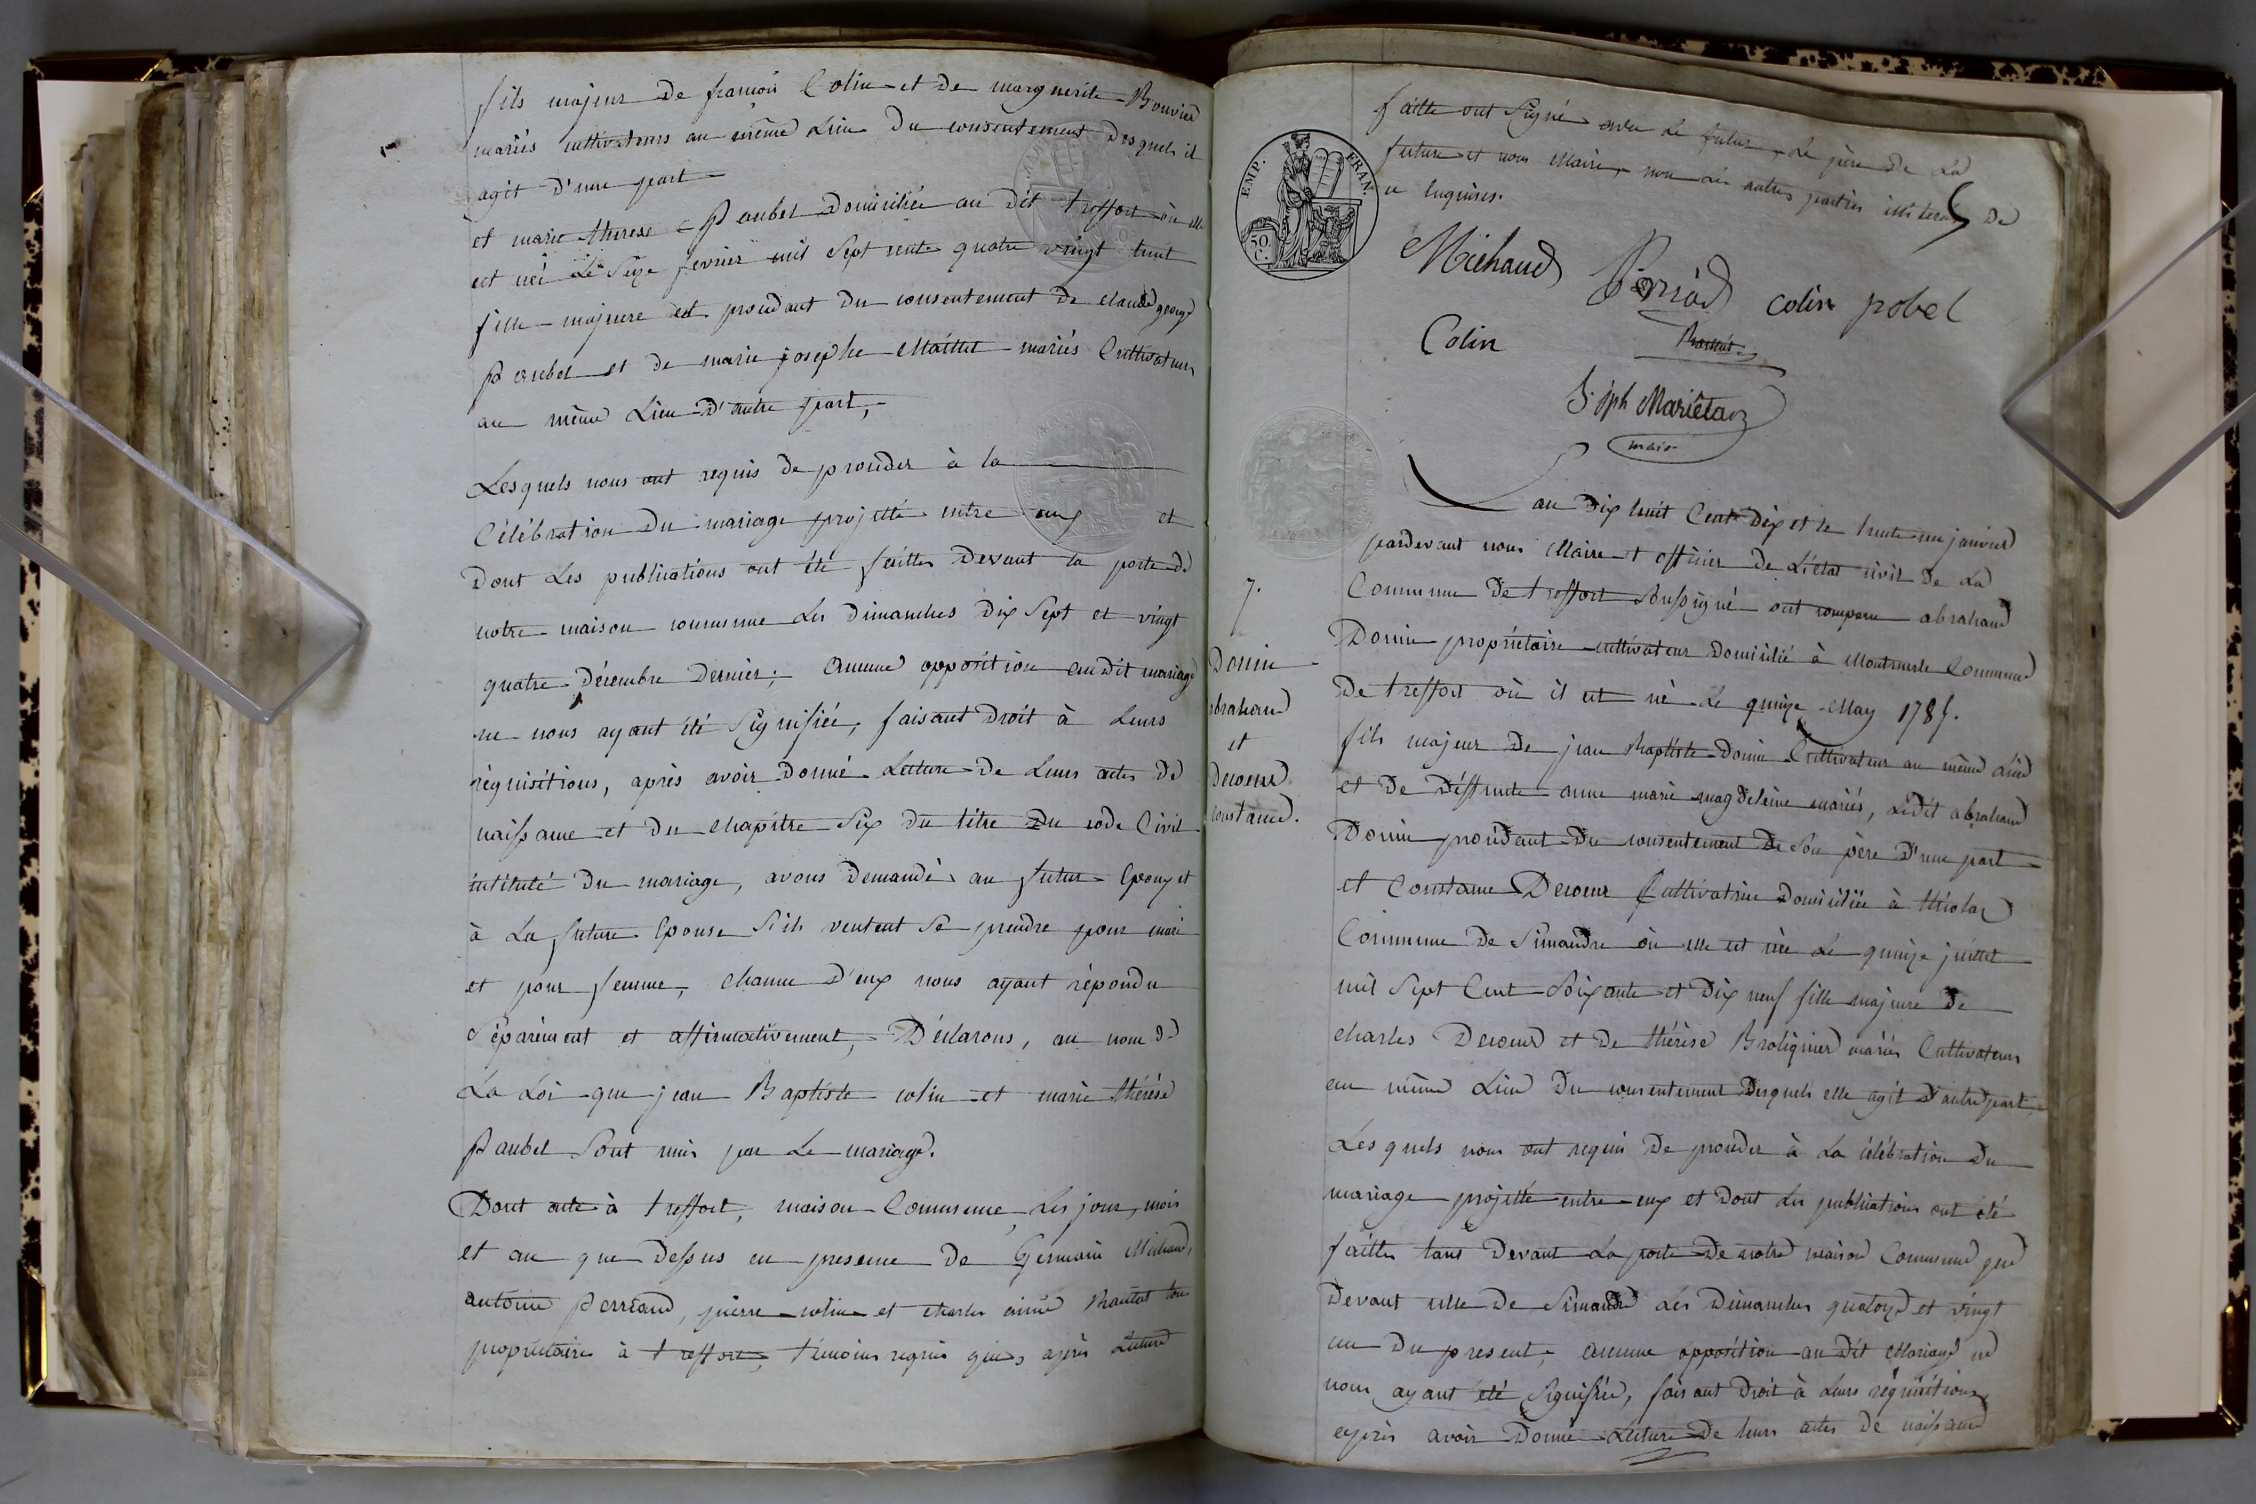 fils majeur de francois Colin et de marguerite Bouvier
mariés cultivateurs au même Lieu du consentement desquels il
agit d'une part
et marie therese Paubel domiciliée au dit treffort où elle
est née Le Seize fevrier mil Sept cent quatre vingt huit
fille majeure et procédant du consentement de claude george
Paubel et de marie josephe Maillet mariés Cultivateurs
au même Lieu D'autre part,
Lesquels nous ont requis de proceder à la
Célébration du mariage projetté entre eux et
Dont Les publications ont été faittes Devant la porte de
notre maison commune Les Dimanches Dix Sept et vingt
quatre Décembre Dernier; Aucune opposition audit mariage
ne nous ayant été Signifiée, faisant Droit à Leurs
réquisitions, après avoir Donné Lecture de Leurs actes de
naissance et du chapitre Six du titre Du code Civil
intitulé Du mariage, avons Demandé au futur Epoux et
à La future Epouse S'ils veulent Se prendre pour mari
et pour femme, chacun D'eux nous ayant répondu
Séparément et affirmativement, Déclarons, au nom de
La Loi que jean Baptiste colin et marie thérèse
Paubel Sont unis par Le mariage.
Dont acte à treffort, maison Commune, Les jour, mois
et an que Dessus en presence de Germain Michaud,
antoine Perreaud, pierre colin et charles aimé tous
propriétaires à treffort, témoins requis qui, après Lecture
faitte ont Signé avec Le futur, Le père de La
future et nous Maire, non Les autres parties illiterés De
ce Enquises.
EMP. FRAN.
50 C.
Michaud colin pobel
Colin
J. jph Mariétan
maire
L'an Dix huit Cent Dix et le trente un janvier
pardevant nous Maire et officier de L'état civil De La
Commune De treffort Soussigné ont comparu abraham
Donin propriétaire cultivateur Domicilié à Montmerle Commune
De treffort où il est né Le quinze May 1785.
fils majeur De jean Baptiste Donin Cultivateur au même Lieu
et De Déffunte anne marie magdeleine mariés, Ledit abraham
Donin procédant Du consentement De Son père D'une part
et Constance Decoeur Cultivatrice Domiciliée à
Commune De Simandre où elle est née Le quinze juillet
mil Sept Cent Soixante et Dix neuf fille majeure De
charles Decoeur et De thérèse Broliquier mariés Cultivateurs
au même Lieu Du consentement Desquels elle agit D'autre part
Lesquels nous ont requis De proceder à La célébration Du
mariage projetté entre eux et Dont Les publications ont été
faittes tant Devant La porte De notre maison Commune que
Devant celle De Simandre Les Dimanches quatorze et vingt
un Du present; aucune opposition au Dit Mariage ne
nous ayant été Signifiée, faisant Droit à Leurs réquisitions
après avoir Donné Lecture De leurs actes De naissance
7.
Donin
abraham
et
Decoeur
Constance.